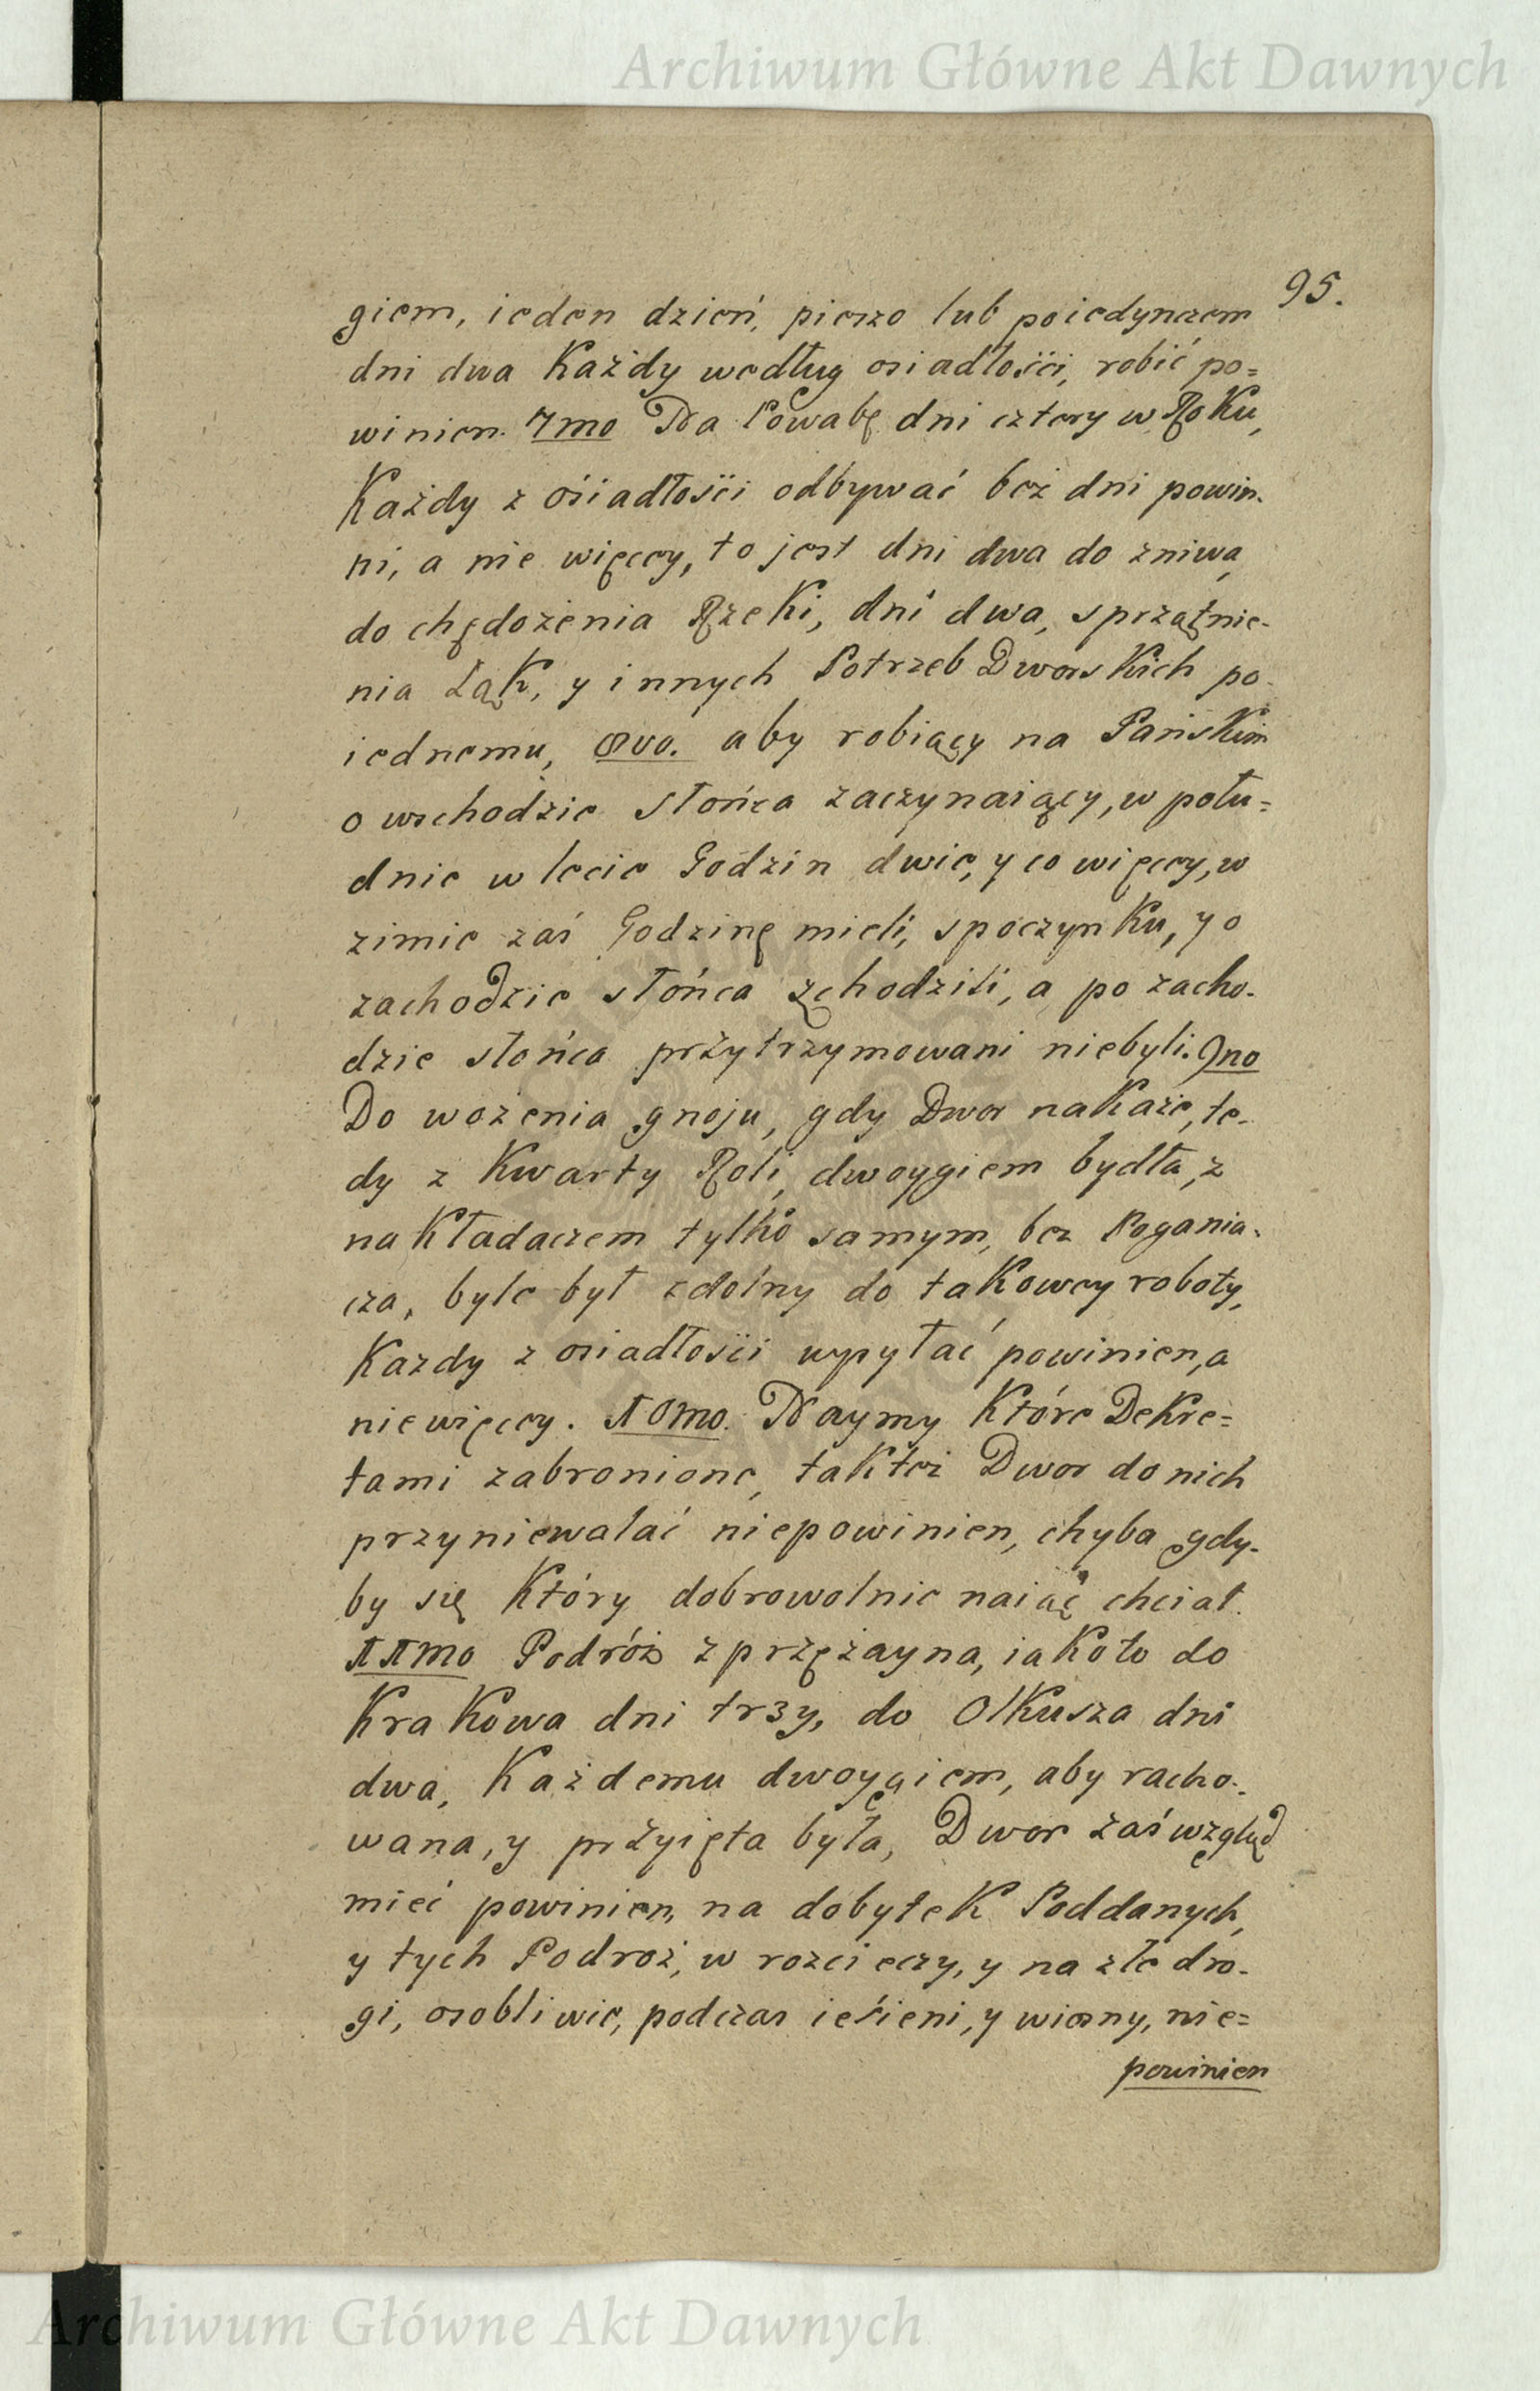 Archiwum Główne Akt Dawnych
95.
giem, ieden dzień, pieszo lub poiedynczem
dni dwa Każdy według osiadłości, robić po=
winien. 7mo Na Powabę dni cztery w Roku,
Każdy z ośiadłości odbywać beż dni powin-
ni, a nie więcey, to jest dni dwa do zniwa,
do chędożenia Rzeki, dni dwa, sprzątnie-
nia Łąk, y innych Potrzeb Dworskich po
iednemu, 8vo. aby robiący na Pańskim
o wschodzie słońca zaczynaiący, w połu=
dnie w lecie Godzin dwie, y co więcey, w
zimie zaś Godzinę mieli, spoczynku, y o
zachodzie słońca zchodzili, a po zacho-
dzie słońca przytrzymowani niebyli. 9no
Do wożenia gnoju, gdy Dwor nakaże, te-
dy z Kwarty Roli, dwoygiem bydła, z
nakładaczem tylko samym, bez Pogania-
cza, byle był zdolny do takowey roboty,
Kazdy z osiadłości wysyłać powinien, a
niewięcey. 10mo. Naymy które Dekre=
tami zabronione, takteż Dwor do nich
przyniewalać niepowinien, chyba gdy-
by się Który dobrowolnie naiąć chciał.
11mo Podróż z przężayna, iako to do
Krakowa dni trzy, do Olkusza dni
dwa, Każdemu dwoygiem, aby racho-
wana, y przyięta była, Dwor zaś wzgląd
mieć powinien, na dobytek Poddanych,
y tych Podroż, w rozcieczy, y na złe dro-
gi, osobliwie, podczas ieśieni, y wiosny, nie=
powinien
Archiwum Główne Akt Dawnych